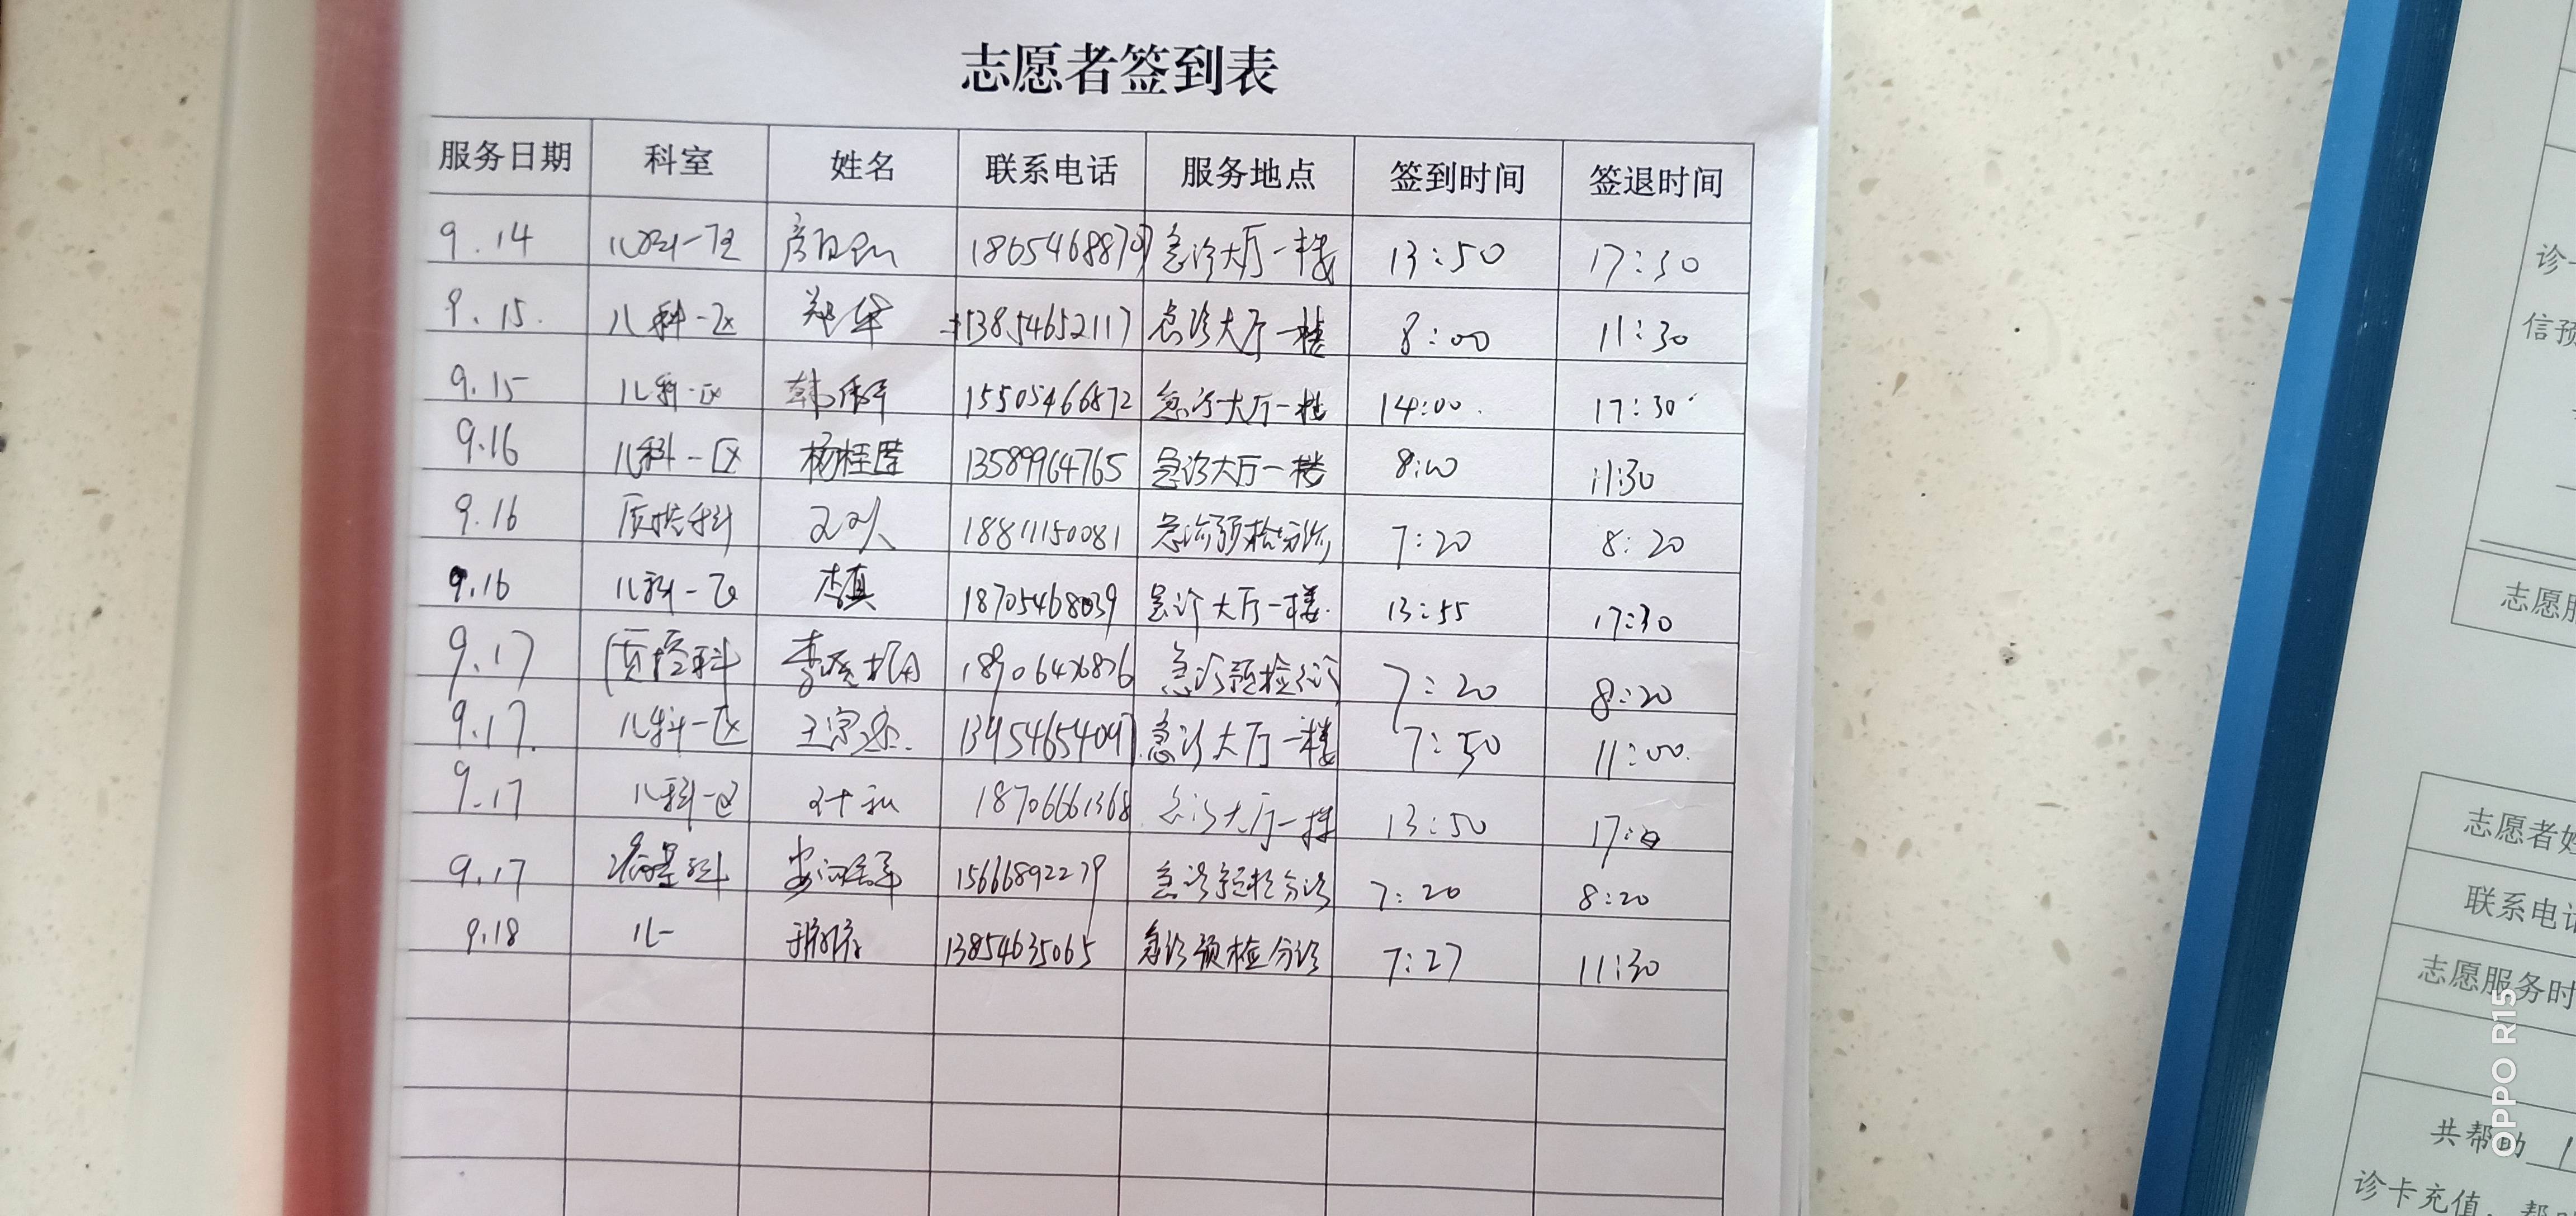 志愿者签到表
服务日期 科室 姓名 联系电话 服务地点 签到时间 签退时间
9.14 儿科一区 急诊大厅一楼 13:50 17:30
9.15. 儿科一区 郑华 13854652117 急诊大厅一楼 8:00 11:30
9.15 儿科一区 15505466872 急诊大厅一楼 14:00. 17:30
9.16 儿科一区 杨桂 13589964765 急诊大厅一楼 8:00 11:30
9.16 质控科 18811150081 急诊预检分诊 7:20 8:20
9.16 儿科一区 李真 18705468039 急诊大厅一楼. 13:55 17:30
9.17 质控科 李 急诊预检分诊 7:20 8:20
9.17. 儿科一区 王 急诊大厅一楼 7:50 11:00.
9.17 儿科一区 18706661368 急诊大厅一楼 13:50
9.17 15666892279 急诊预检分诊 7:20 8:20
9.18 儿一 13854635065 急诊预检分诊 7:27 11:30
诊
信预
志愿服
志愿者姓
联系电话
志愿服务时
共帮助 1
诊卡充值、帮
OPPO R15